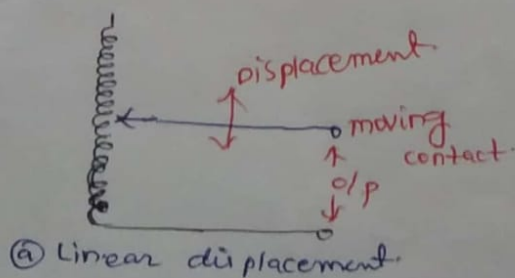 Displacement.
moving
contact.
o/p
ⓐ Linear displacement.